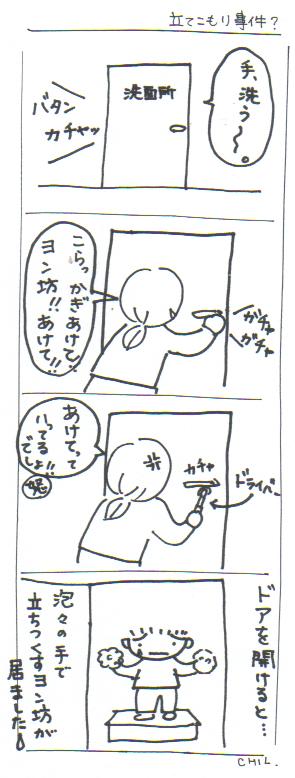 立てこもり事件?
手、洗う〜。
洗面所
バタン
カチャッ
こらっ
かぎあけて!
ヨン坊!!
あけて!!
ガチャ
ガチャ
あけてって
いってる
でしょ!!
怒
カチャ
ドライバー
ドアを開けると…
泡々の手で
立ちつくすヨン坊が
居ました
CHIL.